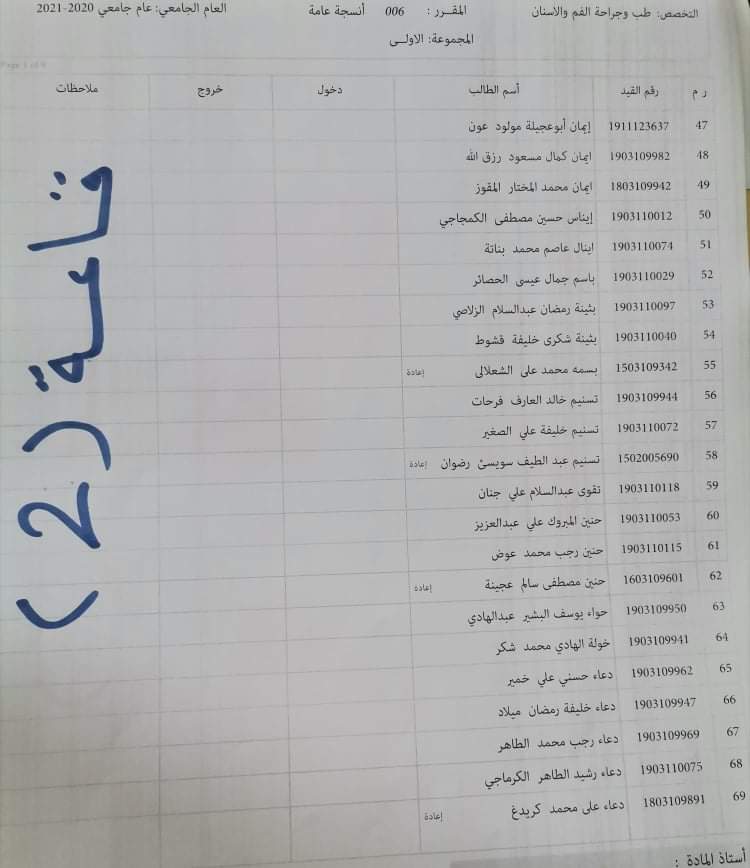 التخصص: طب وجراحة الفم والاسنان المقرر : 006 أنسجة عامة العام الجامعي: عام جامعي 2020-2021
المجموعة: الاولى
Page 3 of 9
ر م رقم القيد أسم الطالب دخول خروج ملاحظات
47 1911123637 إيمان أبوعجيلة مولود عون
48 1903109982 ايمان كمال مسعود رزق الله
49 1803109942 ايمان محمد المختار المقوز
50 1903110012 إيناس حسين مصطفى الكمجاجي
51 1903110074 اينال عاصم محمد بناتة
52 1903110029 باسم جمال عيسى الحصائر
53 1903110097 بثينة رمضان عبدالسلام الزلاصي
54 1903110040 بثينة شكرى خليفة قشوط
55 1503109342 بسمه محمد على الشعلالى إعادة
56 1903109944 تسنيم خالد العارف فرحات
57 1903110072 تسنيم خليفة علي الصغير
58 1502005690 تسنيم عبد الطيف سويسئ رضوان إعادة
59 1903110118 تقوى عبدالسلام علي جنان
60 1903110053 حنين المبروك علي عبدالعزيز
61 1903110115 حنين رجب محمد عوض
62 1603109601 حنين مصطفى سالم عجينة إعادة
63 1903109950 حواء يوسف البشير عبدالهادي
64 1903109941 خولة الهادي محمد شكر
65 1903109962 دعاء حسني علي خمير
66 1903109947 دعاء خليفة رمضان ميلاد
67 1903109969 دعاء رجب محمد الطاهر
68 1903110075 دعاء رشيد الطاهر الكرماجي
69 1803109891 دعاء على محمد كريدغ إعادة
قاعة (2)
أستاذ المادة :